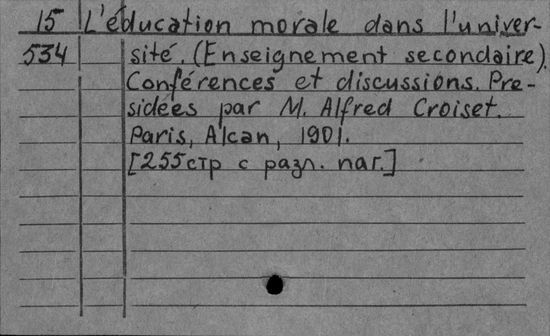 15 L'éducation morale dans l'univer-
534 sité. (Enseignement secondaire).
Conférences et discussions. Pre-
sidées par M. Alfred Croiset.
Paris, Alcan, 1901.
[255стр с разл. паг.]